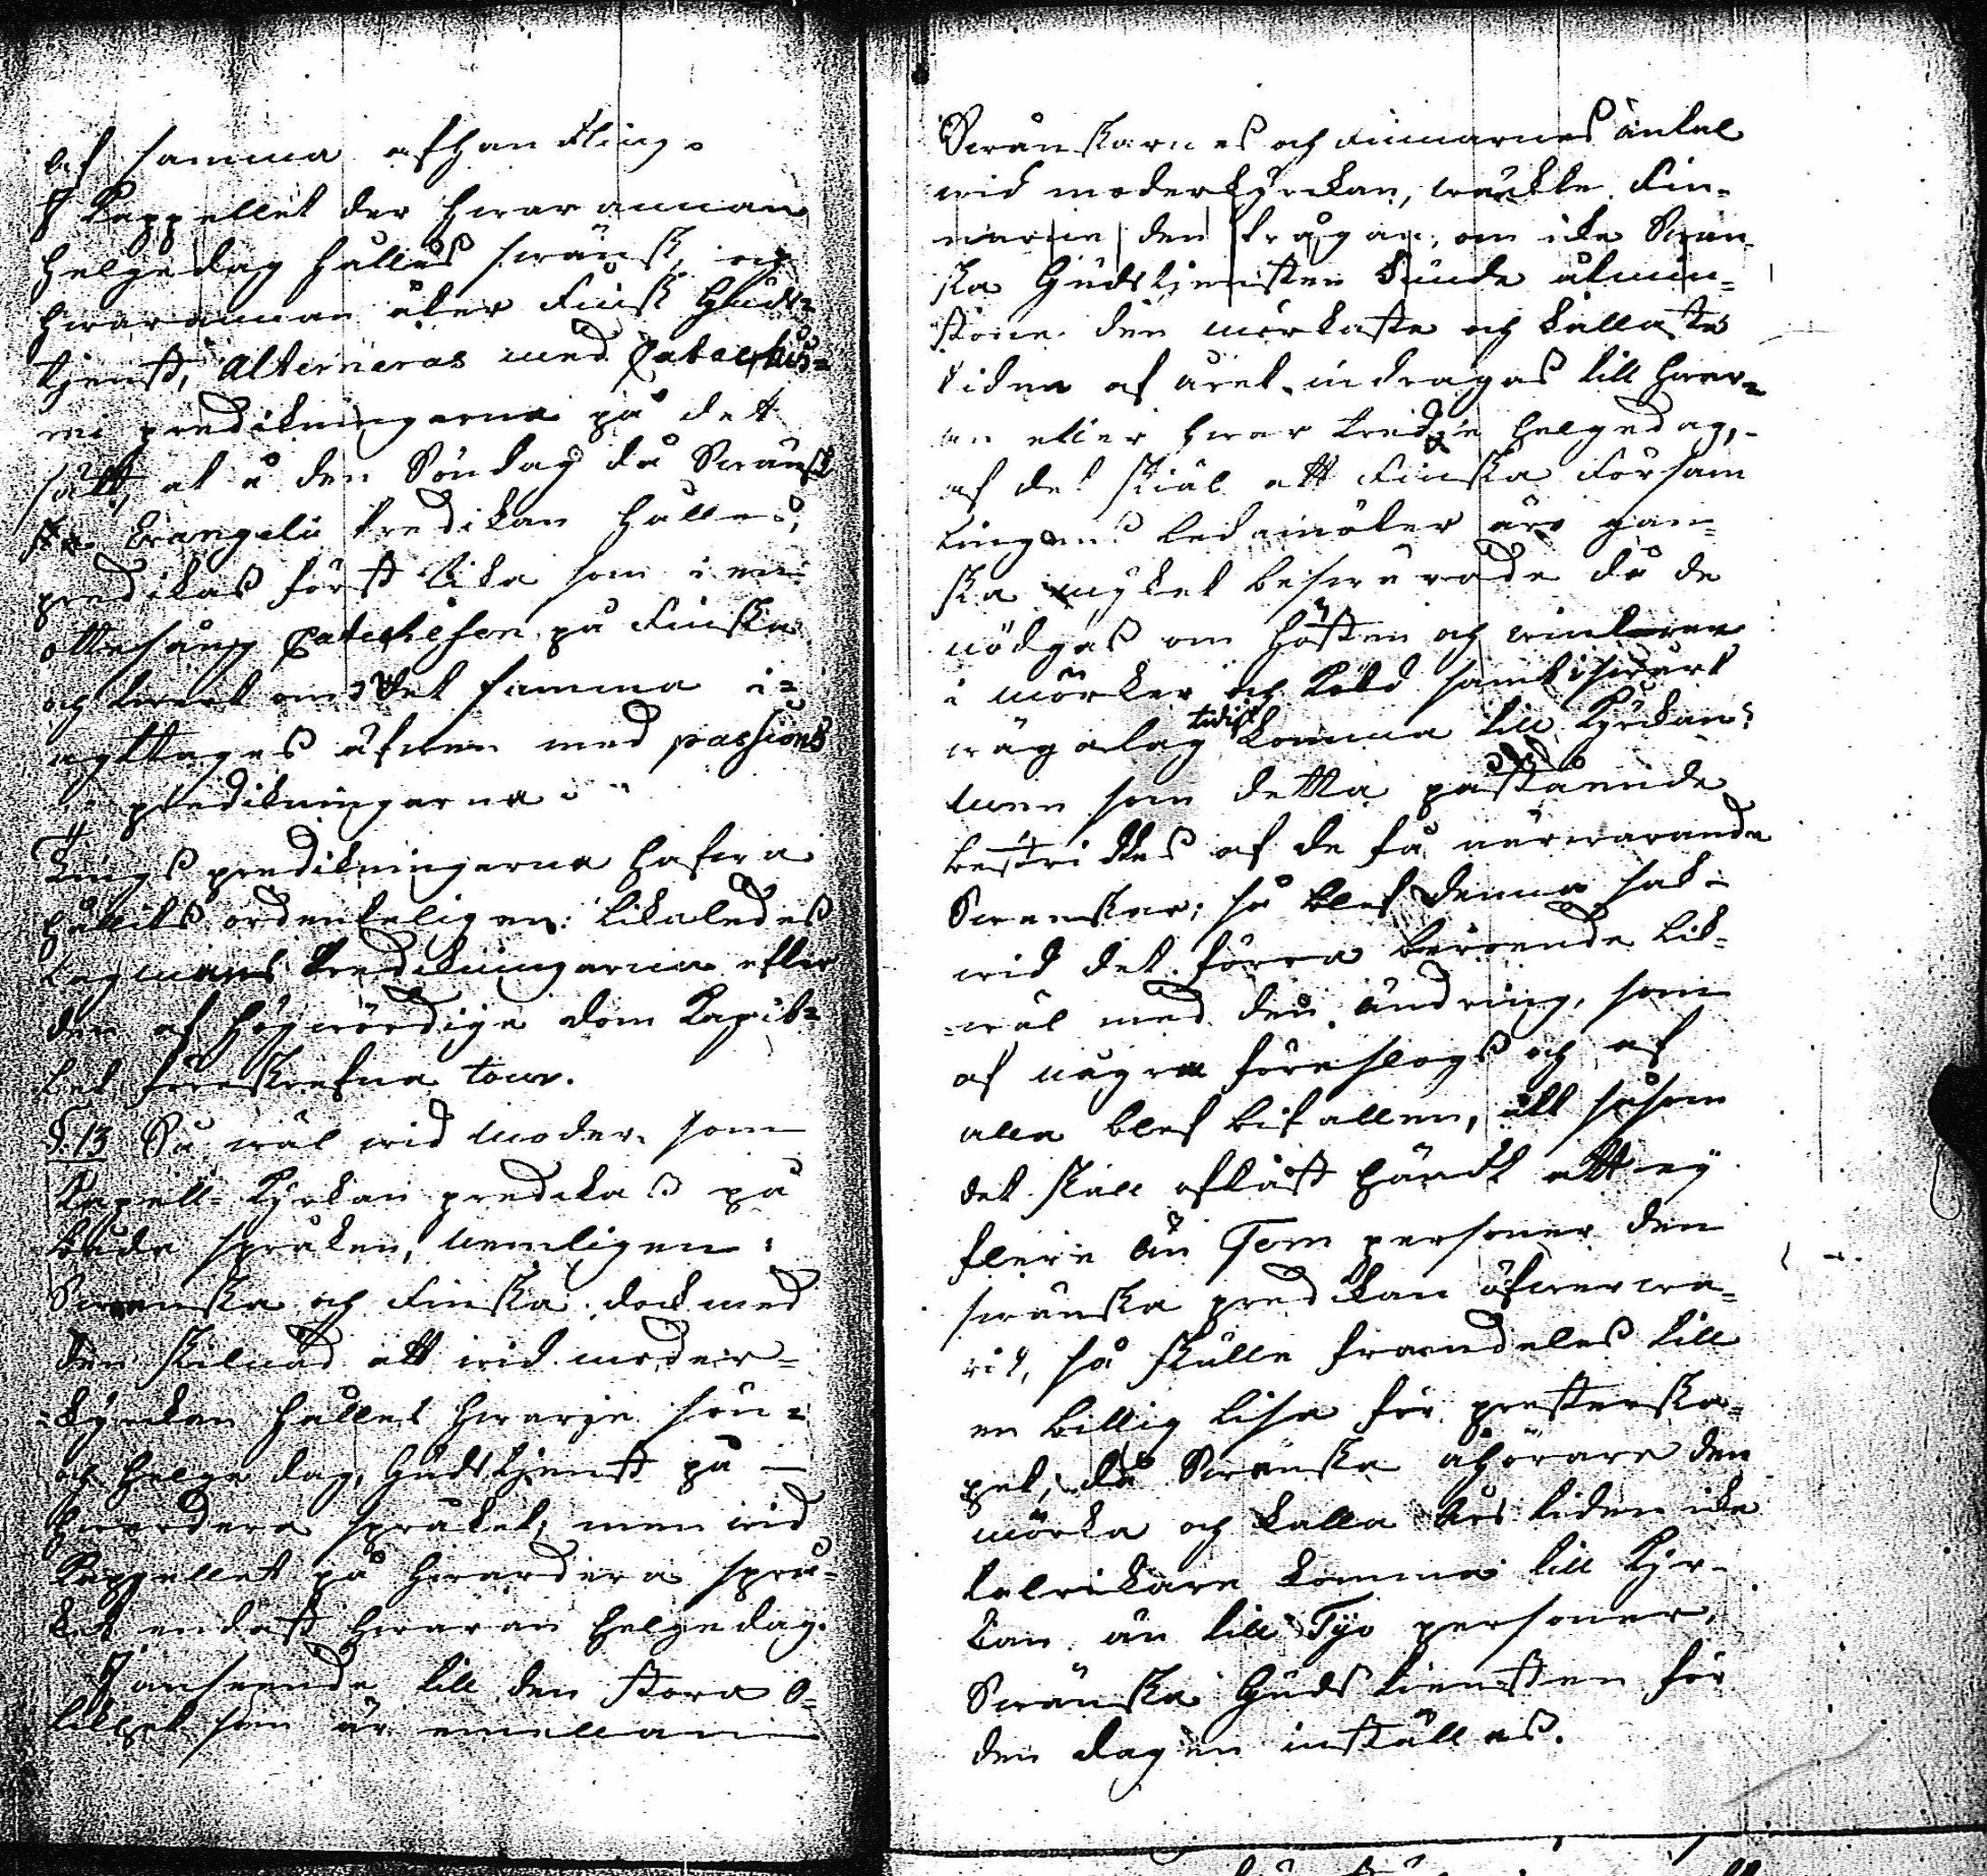 af samma afhandling.
I Kappellet der hwar annan
helgedag hålles swänsk, och
hwarannan åter Finsk Guds-
tjenst, Alterneras med Catechis-
mi predikningarna på det
sätt, at å den Söndag då Swänsk
Evangelii Predikan hålles,
predikas först lika som i en
ottesång Catechesen på Finska
och twert om; Det samma i-
agttages äfwen med passions
predikningarna.
Tings predikningarna hafwa
hållits ordenteligen: likaledes
Lagmans Predikningarna efter
den af Högwördige Dom Kapit-
let föreskrefna tour.
§. 13 Så wäl wid Moder- som
Kapell- Kyrkan predikas på
både språken, nemligen:
Swenska och Finska dock med
den skilnad att wid moder-
kyrkan hållet hwarje sön-
och helge dag, Gudstjenst på
hwardera språket; men wid
Kappellet på hwardera språ-
ket endast hwar an helgedag.
I anseende till den stora o-
likhet som är emellan
Swänskarnes och Finnarnes antal
wid moderkyrckan, wäckte Fin-
narne den frågan, om icke Swän-
ska Gudstjensten kunde åtmin-
stone den mörkaste och kallaste
tiden af året indragas till hwar-
an eller hwar tredje helgedag,
af det skiäl att Finska Försam
lingens Ledamöter äro gan-
ska mycket beswärade då de
nödgas om hösten och winteren
i mörker och köld samt i swårt
wägalag tidigt komma till Kyrkan;
Men som detta påstående
bestriddes af de få närwarande
Swenskar; så blef denna sak
wid det förra beroende lik-
wäl med den ändring, som
af några föreslogs och af
alla blef bifallen, att såsom
det skall oftast händt att ej
flere än Fem personer den
swänska predikan öfwerwa-
rit, så skulle framdeles till
en billig lisa för presterska-
pet, då Swenska åhörare den
mörka och kalla års tiden icke
talrikare komma till Kyr-
kan än till Tijo personer,
Swänska Gudstiensten för
den dagen inställas.